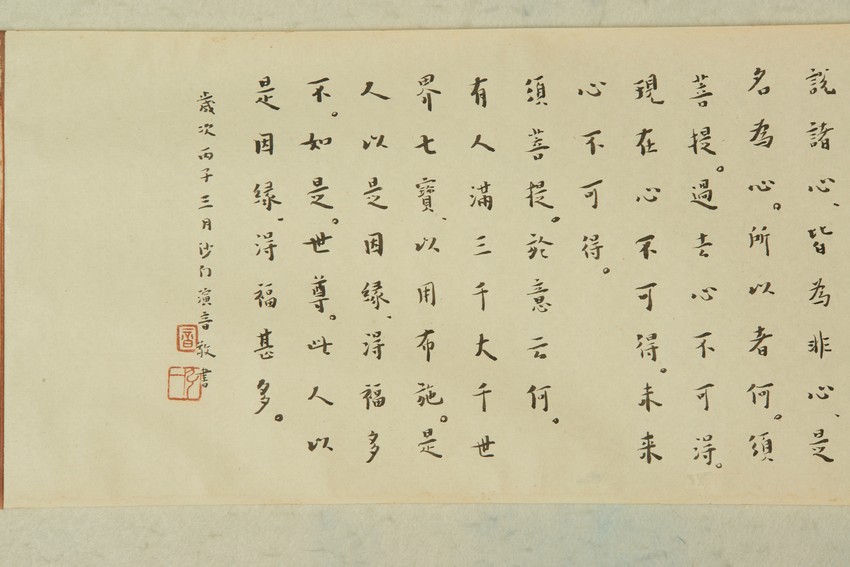 說諸心、皆為非心、是
名為心。所以者何。須
菩提。過去心不可得。
現在心不可得。未来
心不可得。
須菩提。於意云何。
有人滿三千大千世
界七寶、以用布施。是
人以是因緣、得福多
不。如是。世尊。此人以
是因緣、得福甚多。
歲次丙子三月沙門演音敬書
音